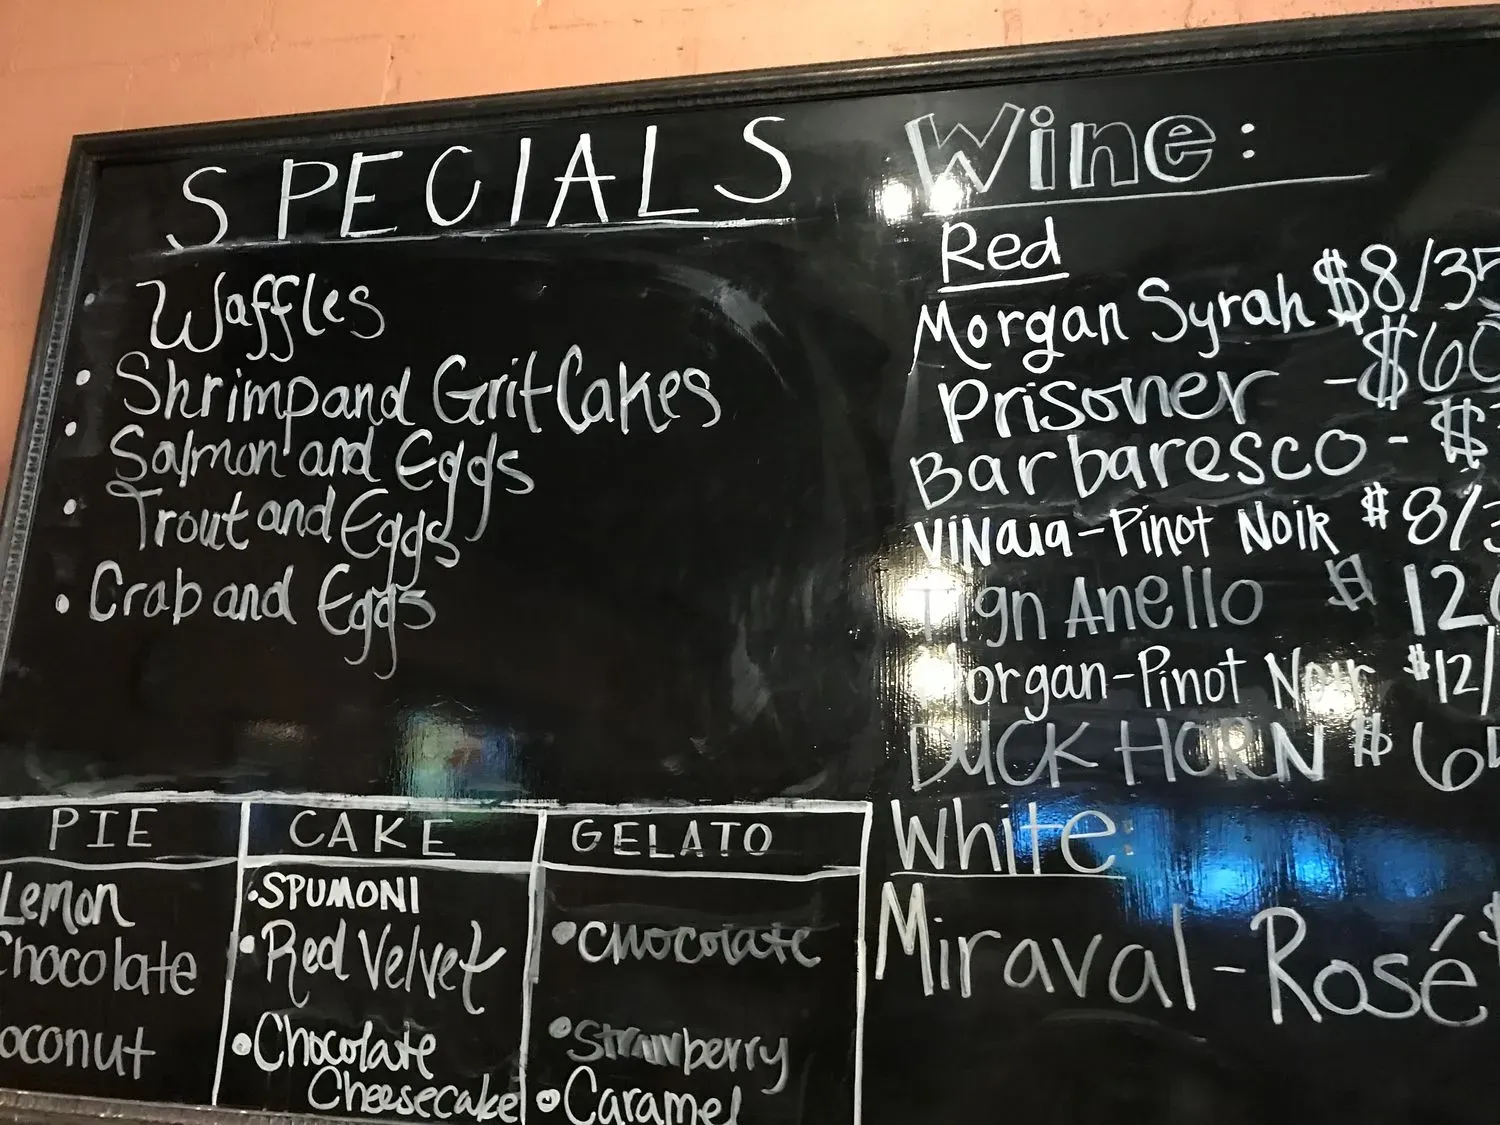 SPECIALS
• Waffles
• Shrimp and Grit Cakes
• Salmon and Eggs
• Trout and Eggs
• Crab and Eggs
PIE
Lemon
Chocolate
oconut
CAKE
• SPUMONI
• Red Velvet
• Chocolate
Cheesecake
GELATO
• Chocolate
• Strawberry
• Caramel
Wine:
Red
Morgan Syrah $8/35
Prisoner - $60
Barbaresco - $
ViNaia-Pinot Noir $8/3
Tign Anello $120
Morgan-Pinot Noir $12/
DUCK HORN $65
White:
Miraval - Rosé $